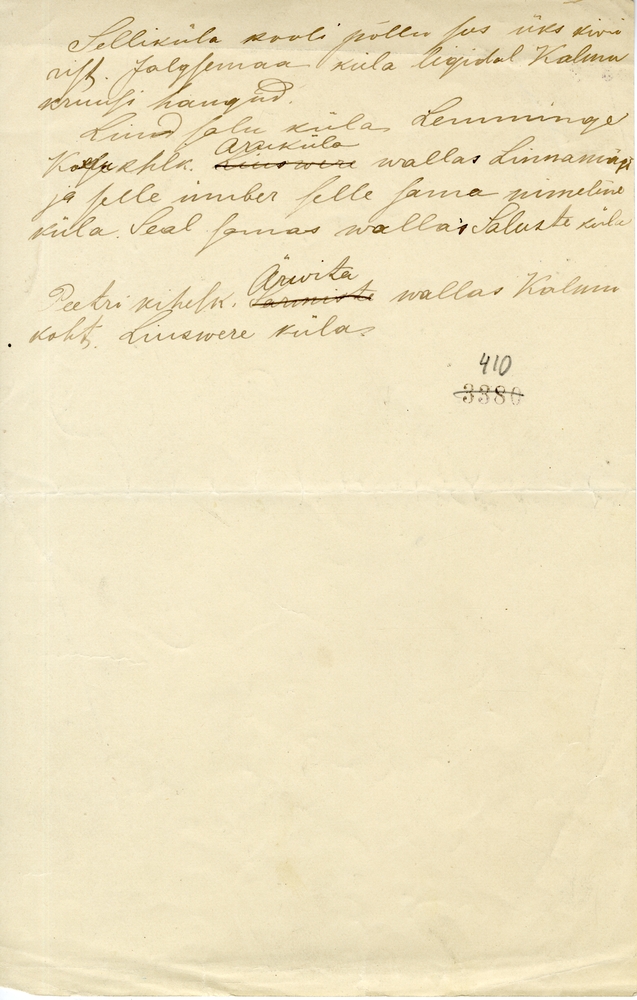 Selliküla kooli põllu sos üks kivi
rist. Jalgsemaa küla ligidal Kalmu
kruusi haugud.
Liind salu külas Lemminge
Araküla
khlk. Liuswere wallas Linnamägi
ja selle ümber selle sama nimeline
küla. Seal samas wallas Saluste küla
Ärwita
Peetri kihelk. wallas Kalmu
koht. Liuswere külas
410
3380